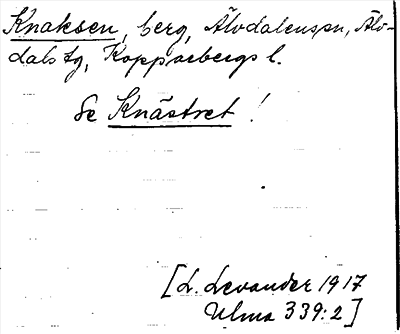 Knaksen, berg, Älvdalens sn, Älv-
dals tg, Kopparbergs l.
Se Knästret !
[L. Levander 1917
Ulma 339:2]